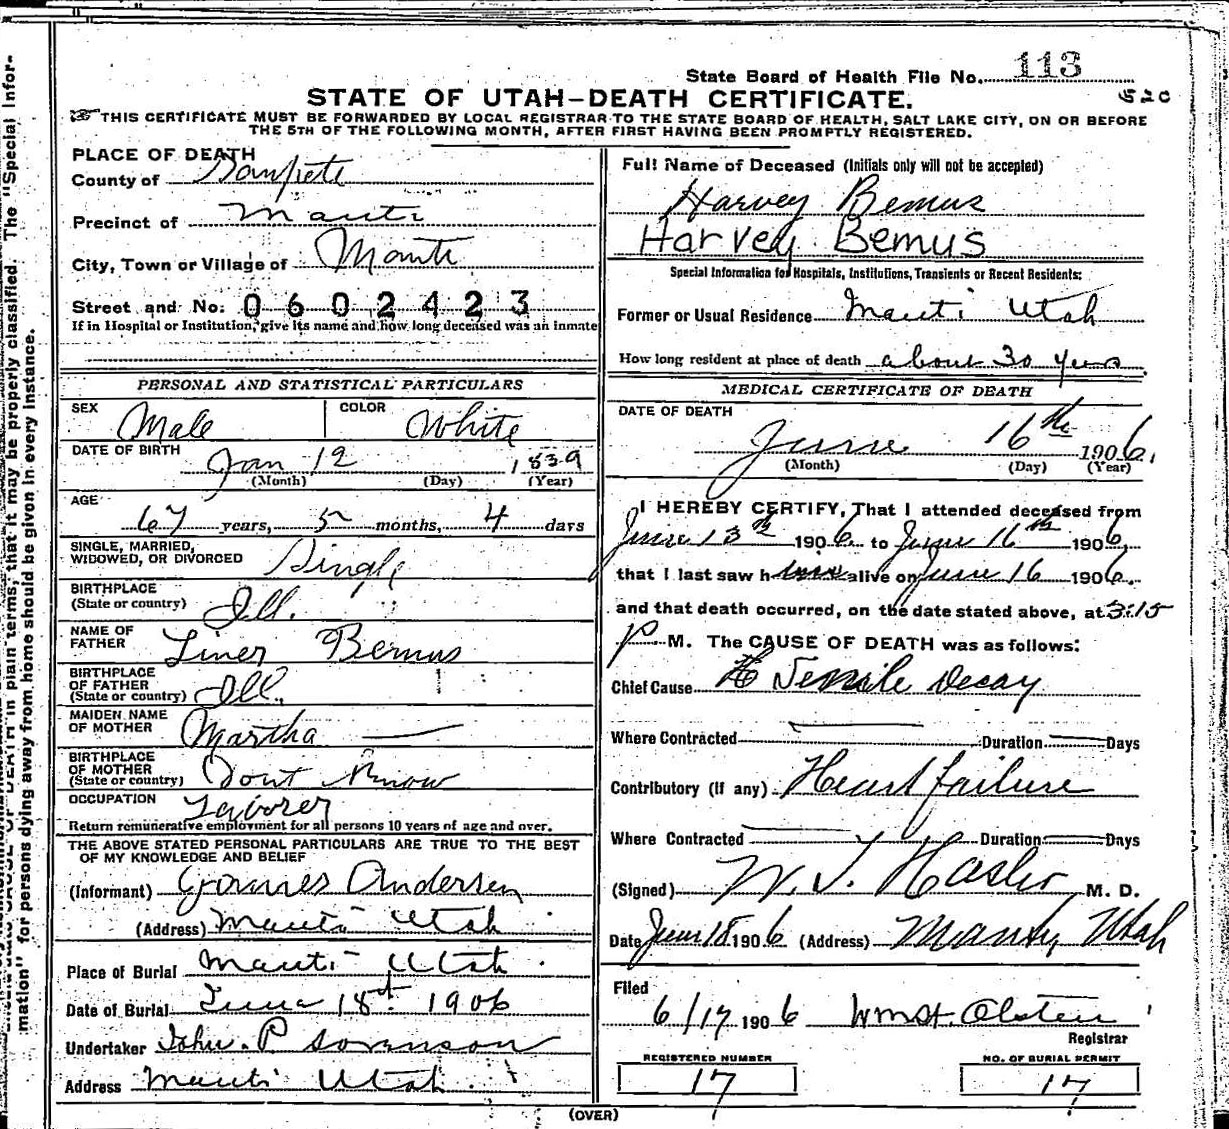 State Board of Health File No. 113
520
STATE OF UTAH-DEATH CERTIFICATE.
THIS CERTIFICATE MUST BE FORWARDED BY LOCAL REGISTRAR TO THE STATE BOARD OF HEALTH, SALT LAKE CITY, ON OR BEFORE
THE 5TH OF THE FOLLOWING MONTH, AFTER FIRST HAVING BEEN PROMPTLY REGISTERED.
PLACE OF DEATH
County of Sanpete
Precinct of Manti
City, Town or Village of Manti
Street and No: 0602423
If in Hospital or Institution, give its name and how long deceased was an inmate
PERSONAL AND STATISTICAL PARTICULARS
SEX Male COLOR White
DATE OF BIRTH Jan 12 1839
(Month) (Day) (Year)
AGE
67 years, 5 months, 4 days
SINGLE, MARRIED,
WIDOWED, OR DIVORCED Single
BIRTHPLACE
(State or country) Ill.
NAME OF
FATHER Liner Bemus
BIRTHPLACE
OF FATHER
(State or country) Ill.
MAIDEN NAME
OF MOTHER Martha
BIRTHPLACE
OF MOTHER
(State or country) Dont Know
OCCUPATION Laborer
Return remunerative employment for all persons 10 years of age and over.
THE ABOVE STATED PERSONAL PARTICULARS ARE TRUE TO THE BEST
OF MY KNOWLEDGE AND BELIEF
(Informant) Andersen
(Address) Manti Utah
Place of Burial Manti Utah
Date of Burial June 18st 1906
Undertaker John. P. Sorenson
Address Manti Utah
Full Name of Deceased (Initials only will not be accepted)
Harvey Bemus
Harvey Bemus
Special Information for Hospitals, Institutions, Transients or Recent Residents:
Former or Usual Residence Manti Utah
How long resident at place of death about 30 years
MEDICAL CERTIFICATE OF DEATH
DATE OF DEATH
June 16th 1906.
(Month) (Day) (Year)
I HEREBY CERTIFY, That I attended deceased from
June 13th 1906 to June 16th 1906,
that I last saw him alive on June 16 1906.
and that death occurred, on the date stated above, at 3:15
P M. The CAUSE OF DEATH was as follows:
Chief Cause Senile Decay
Where Contracted Duration Days
Contributory (if any) Heart failure
Where Contracted Duration Days
(Signed) M. D.
Date June 18 1906 (Address) Manty Utah
Filed
6/17 1906 Wm H. Olsten
Registrar
REGISTERED NUMBER
17
NO. OF BURIAL PERMIT
17
(OVER)
in plain terms, that it may be properly classified. The "Special Infor-
mation" for persons dying away from home should be given in every instance.